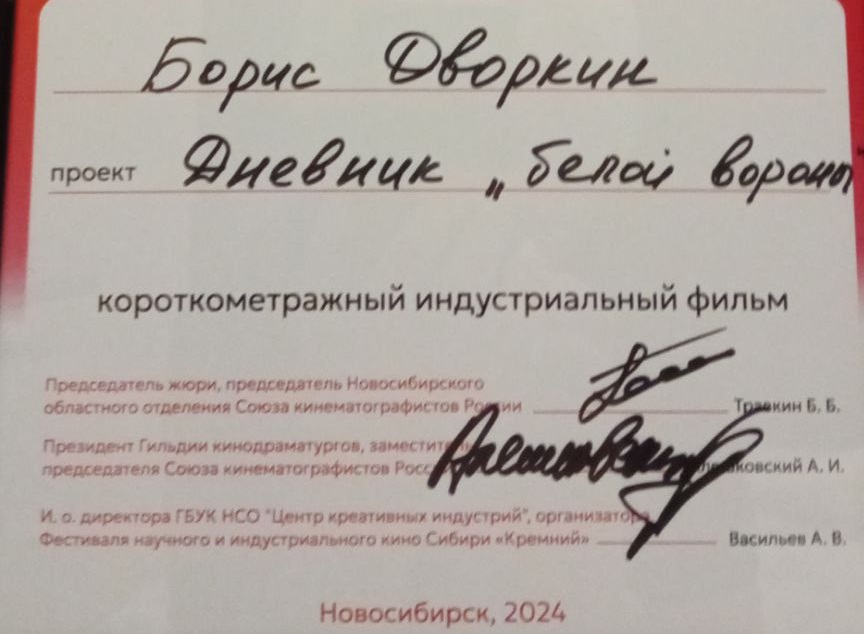 Борис Дворкин
проект Дневник „белой вороны
короткометражный индустриальный фильм
Председатель жюри, председатель Новосибирского
областного отделения Союза кинематографистов России Травкин Б. Б.
Президент Гильдии кинодраматургов, заместитель
председателя Союза кинематографистов России А. И.
И. о. директора ГБУК НСО "Центр креативных индустрий", организатора
Фестиваля научного и индустриального кино Сибири «Кремний» Васильев А. В.
Новосибирск, 2024